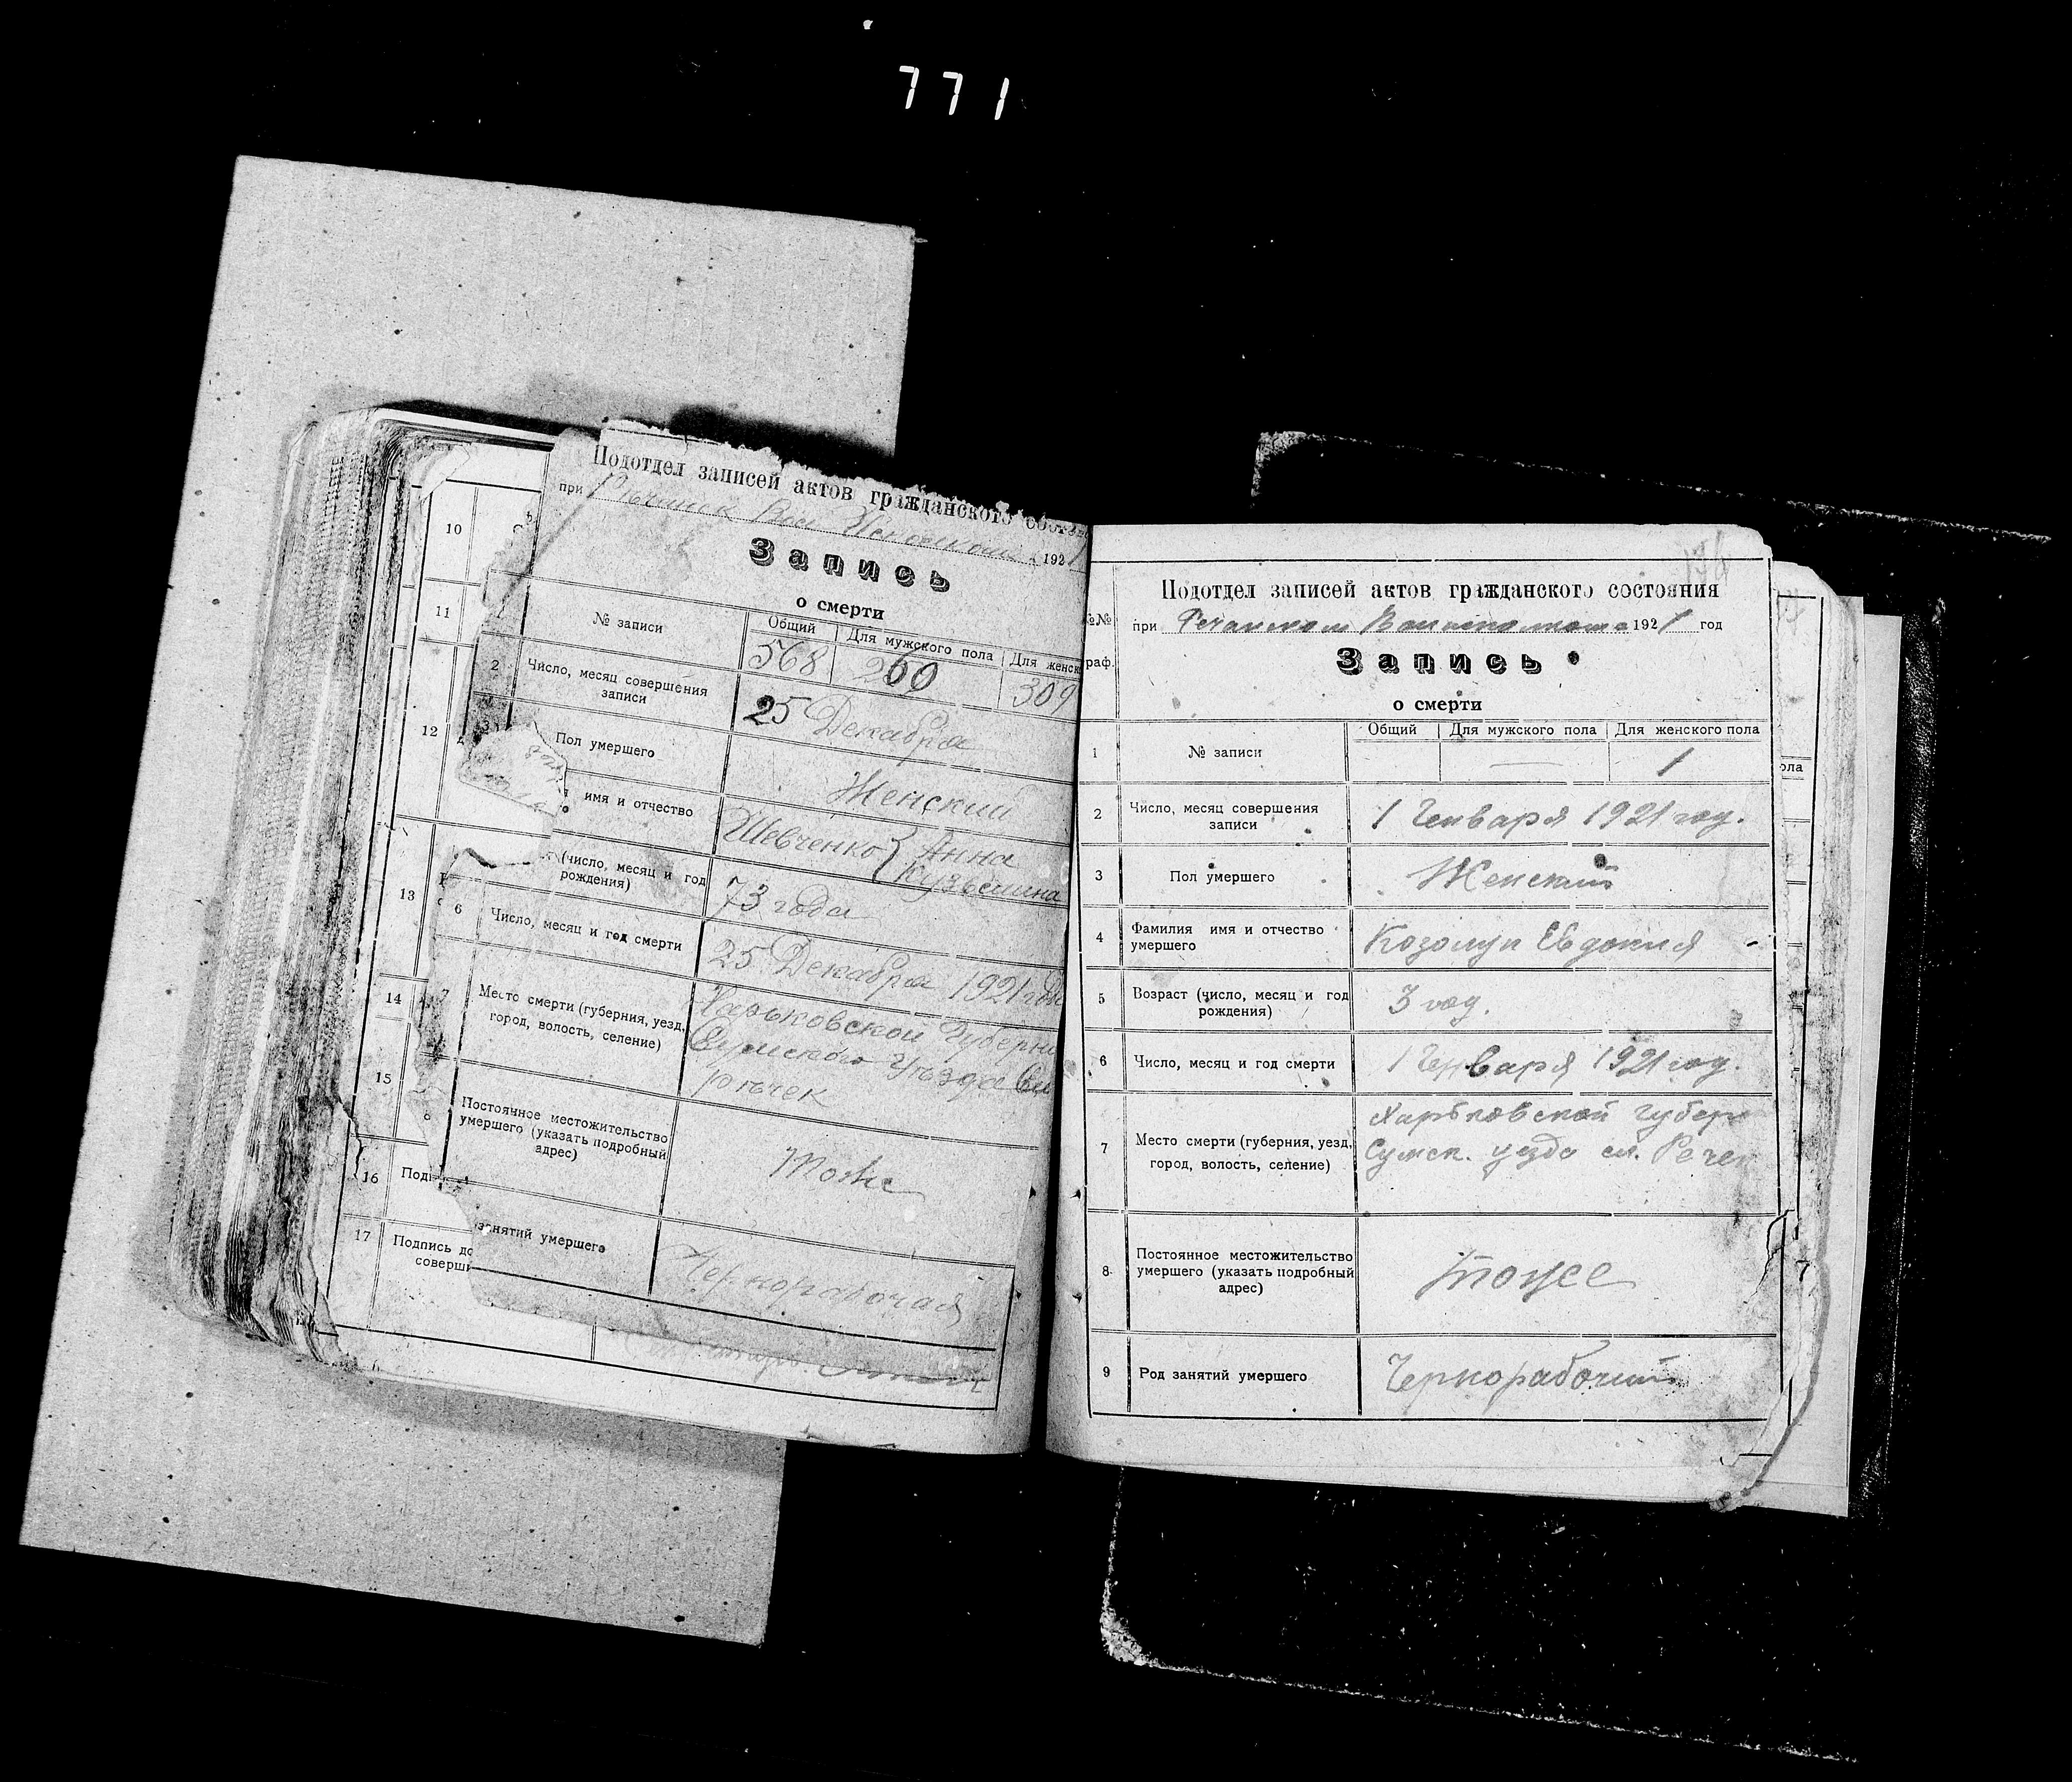 771
10
11
12
13
14
15
16
Подп
17
Подпись до
соверш
Подотдел записей актов гражданского состо
при Речанск Вол Исполкоме 1921
Запись
о смерти
1
№ записи
Общий
Для мужского пола
Для женск
568
260
309
2
Число, месяц совершения
записи
25 Декабря
3
Пол умершего
Женский
имя и отчество
Шевченко { Анна
Кузьмина
(число, месяц и год
рождения)
73 года
6
Число, месяц и год смерти
25 Декабря 1921 года
7
Место смерти (губерния, уезд,
город, волость, селение)
Харьковской Губерни
Сумского Уъзда Сл
Ръчек
8
Постоянное местожительство
умершего (указать подробный
адрес)
Тоже
занятий умершего
Чернорабочая
174
Подотдел записей актов гражданского состояния
№№
раф.
при Речанском Волисполкоме 1921 год
Запись
о смерти
1
№ записи
Общий
Для мужского пола
Для женского пола
—
1
2
Число, месяц совершения
записи
1 Генваря 1921 год.
3
Пол умершего
Женский
4
Фамилия имя и отчество
умершего
Козолуп Евдокия -
5
Возраст (число, месяц и год
рождения)
3 год.
6
Число, месяц и год смерти
1 Генваря 1921 год.
7
Место смерти (губерния, уезд,
город, волость, селение)
Харьковской губер
Сумск. уезда сл. Речек
8
Постоянное местожительство
умершего (указать подробный
адрес)
тоже
9
Род занятий умершего
Чернорабочий
ола
7